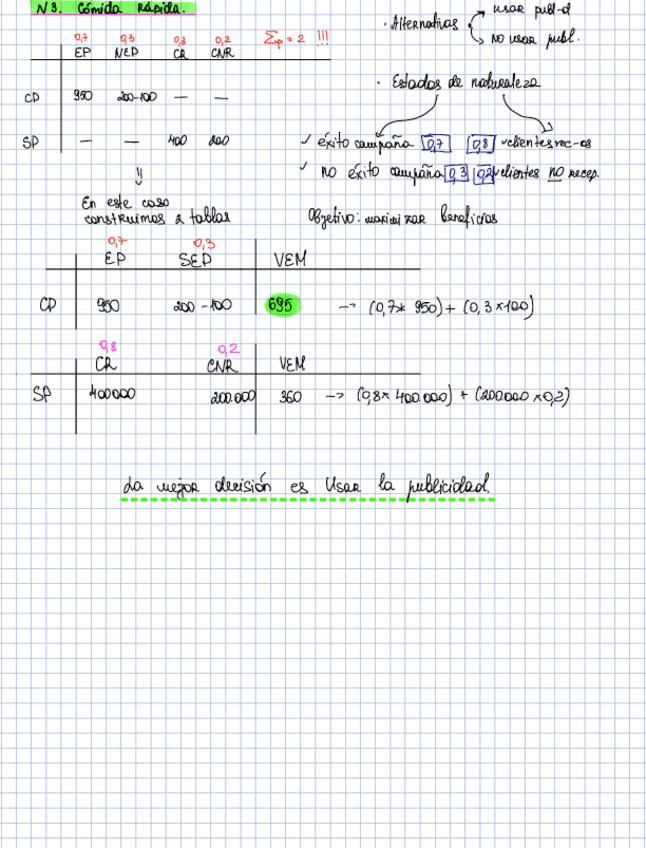 N3. Cómida Rápida.
· Alternativas
usar publ-d
NO usar publ.
0,7 0,3 0,8 0,2 Σp = 2 !!!
EP NEP CR CNR
CD 950 200-100 — —
SP — — 400 200
· Estados de naturaleza
✓ éxito campaña 0,7 0,8 ✓clientes rec-os
✓ no éxito campaña 0,3 0,2 ✓clientes NO recep.
En este caso
construimos 2 tablas
Objetivo: maximizar beneficios
0,7 0,3
EP SEP VEM
CD 950 200-100 695 → (0,7 * 950) + (0,3 × 100)
0,8 0,2
CR CNR VEM
SP 400000 200.000 360 → (0,8 × 400.000) + (200.000 × 0,2)
La mejor decisión es Usar la publicidad.